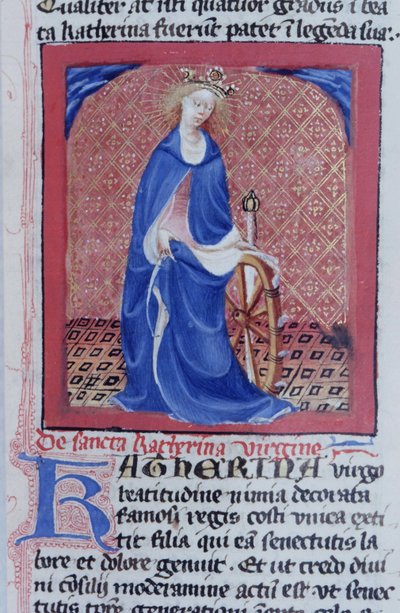 Qualiter at isti quatuor gradus ī bea
ta katherina fuerūt patet ī legēda sua:·
De sancta katherina virgine
KATHERINA virgo
beatitudine nimia decorata
famosi regis costi vnica exti
tit filia qui eā senectutis la
bore et dolore genuit. Et ut credo diui
ni cōsilij moderamine actū est vt senec
tutis